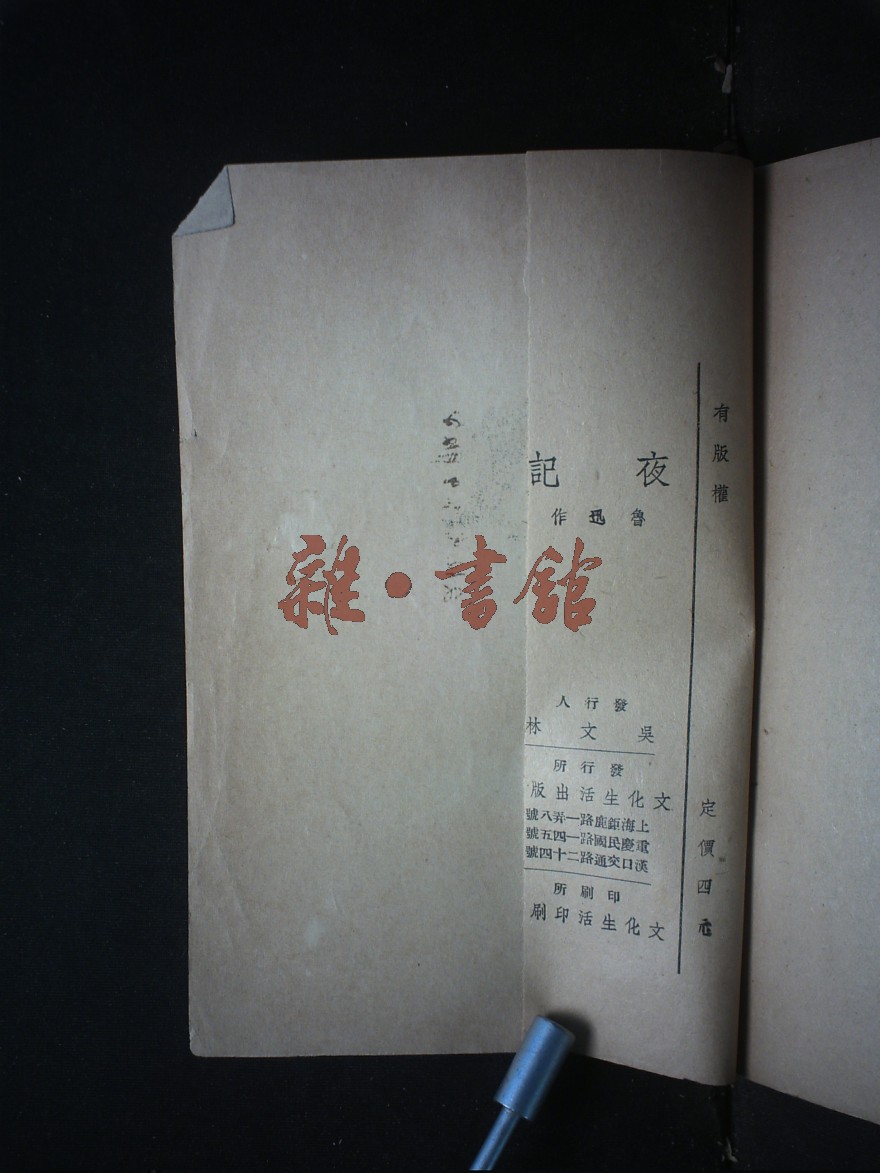 有版權
定價四
夜記
魯迅作
發行人
吳文林
發行所
文化生活出版
上海鉅鹿路一弄八號
重慶民國路一四五號
漢口交通路二十四號
印刷所
文化生活印刷
雜·書館